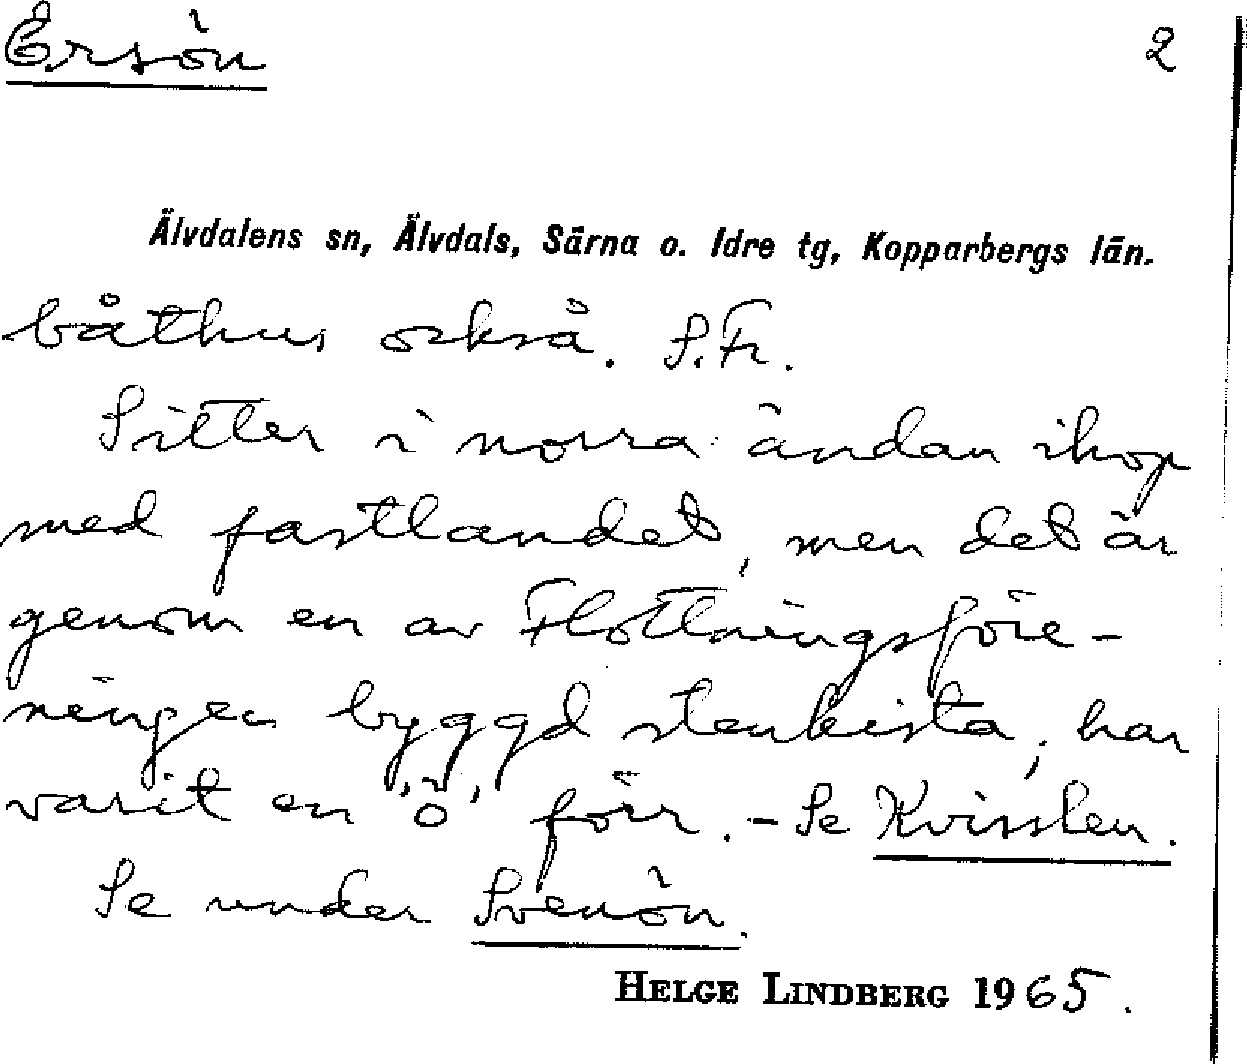 Ersön 2
Älvdalens sn, Älvdals, Särna o. Idre tg, Kopparbergs län.
båthus också. S.Fr.
Sitter i norra ändan ihop
med fastlandet, men det är
genom en av Flottningsföre-
ningen byggd stenkista; har
varit en "ö" förr. - Se Kvisslen.
Se under Svenön.
HELGE LINDBERG 1965.